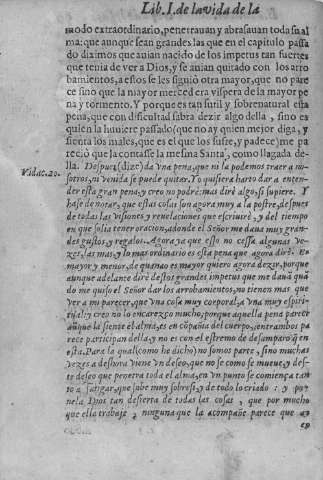 Lib. I. de la vida de la
modo extraordinario, penetrauan y abrasauan toda su al
ma: que aunque sean grandes las que en el capitulo passa
do diximos que auian nacido de los impetus tan fuertes
que tenia de ver a Dios, y se auian quitado con los arro
bamientos, a estos se les siguiò otra mayor, que no pare
ce sino que la mayor merced era vispera de la mayor pe
na y tormento. Y porque es tan sutil y sobrenatural esta
pena, que con dificultad sabra dezir algo della, sino es
quien la huuiere passado (que no ay quien mejor diga, y
sienta los males, que es el que los sufre, y padece) me pa
reciò que la contasse la mesma Santa, como la gada de
lla. Despues (dize) da vna pena, que ni la podemos traer a no-
Vida c. 20.
sotros, ni venida se puede quitar. Yo quisiera harto dar a enten-
der esta gran pena, y creo no podrè: mas dirè algo, si supiere. Y
hase de notar, que estas cosas son agora muy a la postre, despues
de todas las visiones y reuelaciones que escriuirè, y del tiempo
en que solia tener oracion, adonde el Señor me daua muy gran-
des gustos, y regalos. Agora ya que esso no cessa algunas ve-
zes, las mas, y lo mas ordinario es esta pena que agora dirè. Es
mayor y menor, de quando es mayor quiero agora dezir, porque
aunque adelante dirè destos grandes impetus que me dauã quã
do me quiso el Señor dar los arrobamientos, no tienen mas que
ver a mi parecer, que vna cosa muy corporal, a vna muy espiri-
tual: y creo no lo encarezco mucho, porque aquella pena parece
aũque la siente el alma, es en cõpañia del cuerpo, entrambos pa
rece participan della, y no es con el estremo de desamparo q̃ en
esta. Para la qual (como he dicho) no somos parte, sino muchas
vezes a deshora viene vn deseo, que no se como se mueue, y des-
te deseo que penetra toda el alma, en vn punto se comiença tan
to a fatigar, que sube muy sobre si, y de todo lo criado: y po-
nela Dios tan desierta de todas las cosas, que por mucho
que ella trabaje, ninguna que la acompañe parece que ay